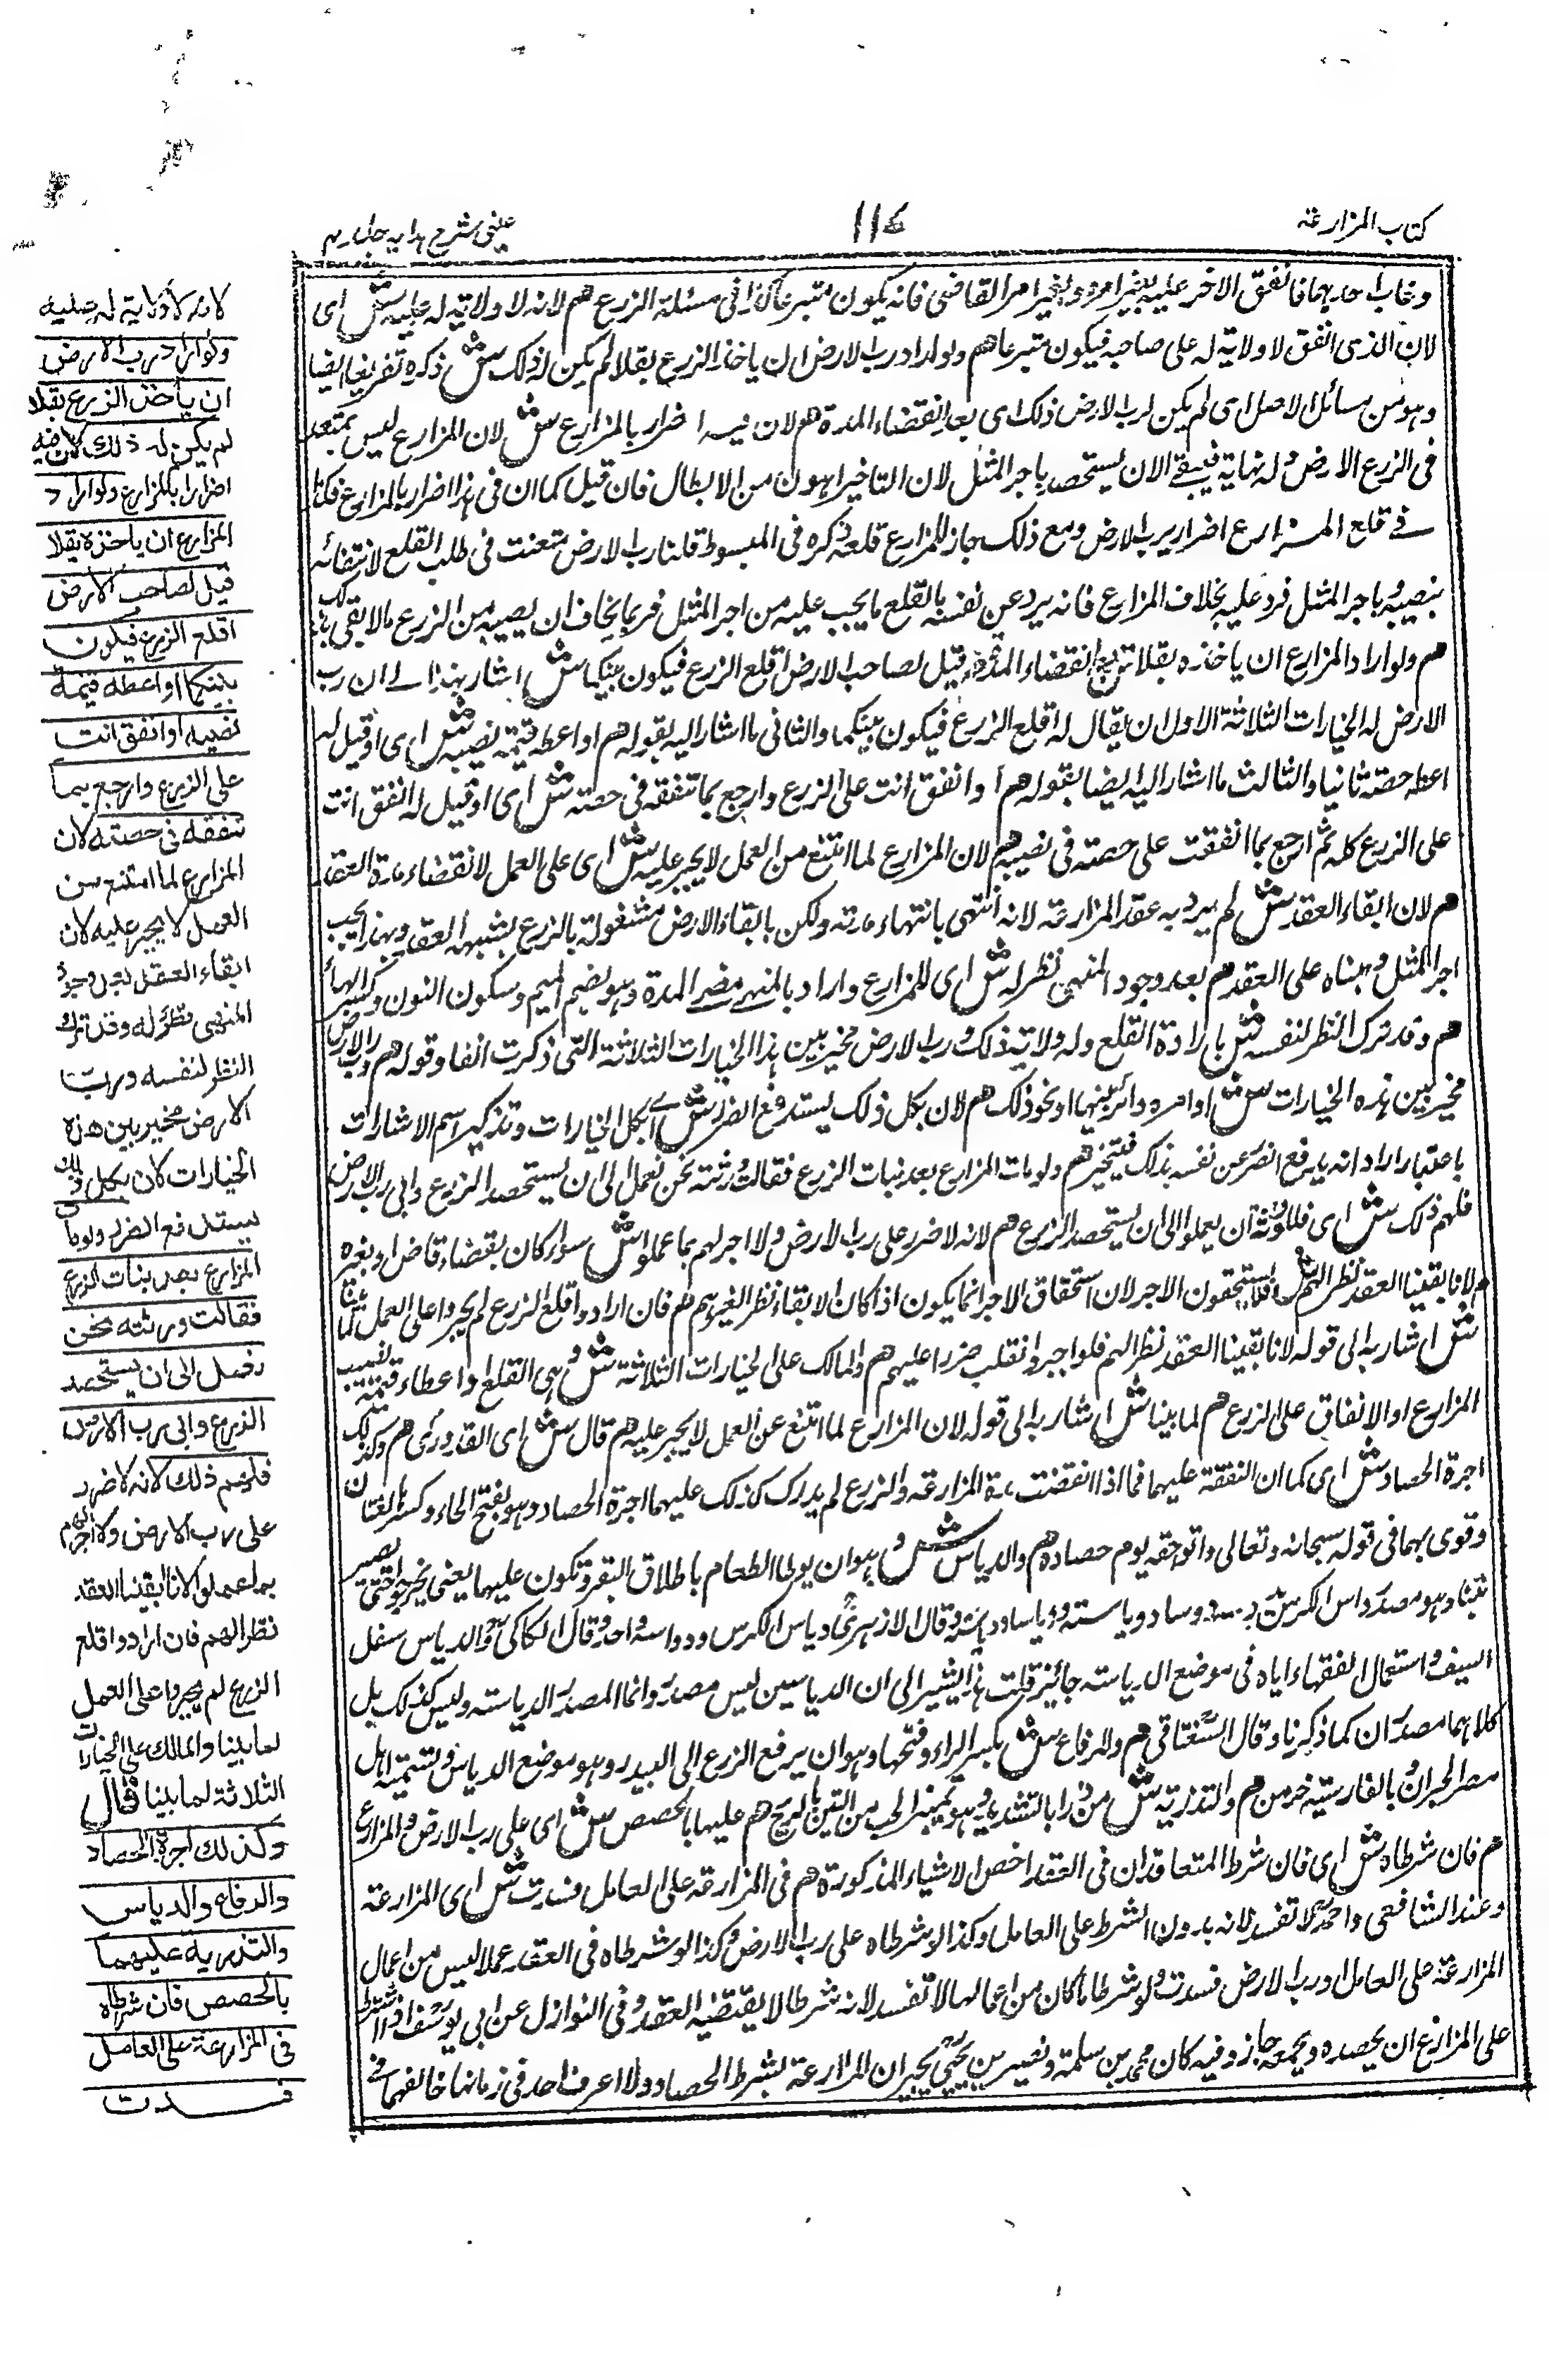 كتاب المزارعة
١١٧
عينى شرح هدايه جلد رابع
وغاب احدهما فانفق الآخر عليه بغير امره وبغير امر القاضى فانه يكون متبرعا كذا فى مسئلة الزرع هم لانه لا ولاية له عليه ش اى
لان الذى انفق لا ولاية له على صاحبه فيكون متبرعا هم ولو اراد رب الارض ان ياخذ الزرع بقلا لم يكن له ذلك ش ذكره تفريعا ايضا
وهو من مسائل الاصل اى لم يكن لرب الارض ذلك اى بعد انقضاء المدة هم لان فيه اضرارا بالمزارع ش لان المزارع ليس بمتعد
فى الزرع الارض وله نهاية فيبقى الى ان يستحصد باجر المثل لان التاخير اهون من الابطال فان قيل كما ان فى هذا اضرار بالمزارع فكذا
فى قلع المزارع اضرار برب الارض ومع ذلك جاز للمزارع قلعه ذكره فى المبسوط قلنا رب الارض متعنت فى طلب القلع لانتفائه
بنصيبه وباجر المثل فرد عليه بخلاف المزارع فانه يرد عن نفسه بالقلع ما يجب عليه من اجر المثل فربما يخاف ان يصيبه من الزرع مالا يفى بذلك
هم ولو اراد المزارع ان ياخذه بقلا ش بعد انقضاء المدة هم قيل لصاحب الارض اقلع الزرع فيكون بينكما ش اشار بهذا الى ان رب
الارض له الخيارات الثلاثة الاول ان يقال له اقلع الزرع فيكون بينكما والثانى ما اشار اليه بقوله هم او اعطه قيمة نصيبه ش اى او قيل له
اعطه حصته ثانيا والثالث ما اشار اليه ايضا بقوله هم أو انفق انت على الزرع وارجع بما تنفقه فى حصته ش اى او قيل له انفق انت
على الزرع كله ثم ارجع بما انفقت على حصته فى نصيبه هم لان المزارع لما امتنع من العمل لا يجبر عليه ش اى على العمل لانقضاء مدة العقد
هم لان ابقاء العقد ش لم يرد به عقد المزارعة لانه انتهى بانتهاء مدته ولكن بابقاء الارض مشغولة بالزرع بشبهة العقد وبهذا يجب
اجر المثل وبناه على العقد هم بعد وجود المنهى نظر له ش اى للمزارع واراد بالمنهى مضى المدة وهو بضم الميم وسكون النون وكسر الهاء
هم وقد ترك النظر لنفسه ش بارادة القلع وله ولاية ذلك ورب الارض مخير بين هذا الخيارات الثلاثة التى ذكرت انفا وقوله هم ورب الارض
مخير بين هذه الخيارات ش او امره دائر بينها او نحو ذلك هم لان بكل ذلك يستدفع الضرر ش اى بكل الخيارات وتذكير اسم الاشارات
باعتبار اراد انه يدفع الضرر عن نفسه بذلك فيتخير هم ولو مات المزارع بعد نبات الزرع فقالت ورثته نحن نعمل الى ان يستحصد الزرع وابى رب الارض
فلهم ذلك ش اى فللورثة ان يعملوا الى ان يستحصد الزرع هم لانه لا ضرر على رب الارض ولا اجر لهم بما عملوا ش سواء كان بقضاء قاض او بغيره
هم لانا بقينا العقد نظرا لهم ش فلا يستحقون الاجر لان استحقاق الاجر انما يكون اذا كان الابقاء نظرا لغيرهم هم فان ارادوا قلع الزرع لم يجبروا على العمل لما بينا
ش اشار به الى قوله لانا بقينا العقد نظرا لهم فلو اجبروا انقلب ضررا عليهم هم والمالك على الخيارات الثلاثة ش وهى القلع او اعطاء قيمة نصيب
المزارع او الانفاق على الزرع هم لما بينا ش اشار به الى قوله لان المزارع لما امتنع عن العمل لا يجبر عليه هم قال ش اى القدورى هم وكذلك
اجرة الحصاد ش اى كما ان النفقة عليهما فيما اذا انقضت مدة المزارعة والزرع لم يدرك كذلك عليهما اجرة الحصاد وهو بفتح الحاء وكسرها لغتان
وقرى بهما فى قوله سبحانه وتعالى واتوا حقه يوم حصاده هم والدياس ش وهو ان يوطا الطعام باطلاق البقر وتكون عليها يعنى يخرجوا حتى يصير
تبنا وهو مصدر داس الكرس وقال الازهرى دياس الكرس ودواسه واحد وقال الكاكى والدياس سفل
السيف واستعمال الفقهاء اياه فى موضع الدياسة جائز قلت هذا يشير الى ان الدياس ليس مصدر وانما المصدر الدياسة وليس كذلك بل
كلاهما مصدر ان كما ذكرنا وقال السغناقى هم والرفاع ش بكسر الراء وفتحها وهو ان يرفع الزرع الى البيدر وهو موضع الدياس وتسميته اهل
مصر الجرن وبالفارسية خرمن هم والتذرية ش من ذرا بالتشديد وهو تميز الحب من التبن بالريح هم عليهما بالحصص ش اى على رب الارض والمزارع
هم فان شرطاه ش اى فان شرط المتعاقدان فى العقد احض الاشياء المذكورة هم فى المزارعة على العامل فسدت ش اى المزارعة
وعند الشافعى واحمد لا تفسد لانه بدون الشرط على العامل وكذا لو شرطاه على رب الارض وكذا لو شرطاه فى العقد عملا ليس من اعمال
المزارعة على العامل او رب الارض فسدت ولو شرطا ما كان من اعمالها لا تفسد لانه شرط لا يقتضيه العقد وفى النوازل عن ابى يوسف اذا شرط
على المزارع ان يحصده ويجمعه جاز وفيه كان محمد بن سلمة ونصير بن يحيى يجيزان المزارعة بشرط الحصاد ولا اعرف احد فى زمانها خالفهما فى
لانه لا ولاية له عليه
ولو اراد رب الارض
ان يأخذ الزرع بقلا
لم يكن له ذلك لان فيه
اضرارا بالمزارع ولو اراد
المزارع ان ياخذه بقلا
قيل لصاحب الارض
اقلع الزرع فيكون
بينكما او اعطه قيمة
نصيبه او انفق انت
على الزرع وارجع بما
تنفقه فى حصته لان
المزارع لما امتنع من
العمل لا يجبر عليه لان
ابقاء العقد بعد وجود
المنهى نظر له وقد ترك
النظر لنفسه ورب
الارض مخير بين هذه
الخيارات لان بكل ذلك
يستدفع الضرر ولو مات
المزارع بعد نبات الزرع
فقالت ورثته نحن
نعمل الى ان يستحصد
الزرع وابى رب الارض
فلهم ذلك لانه لا ضرر
على رب الارض ولا اجر لهم
بما عملوا لانا ابقينا العقد
نظرا لهم فان ارادوا قلع
الزرع لم يجبروا على العمل
لما بينا والمالك على الخيارات
الثلاثة لما بينا قال
وكذلك اجرة الحصاد
والرفاع والدياس
والتذرية عليهما
بالحصص فان شرطاه
فى المزارعة على العامل
فسدت